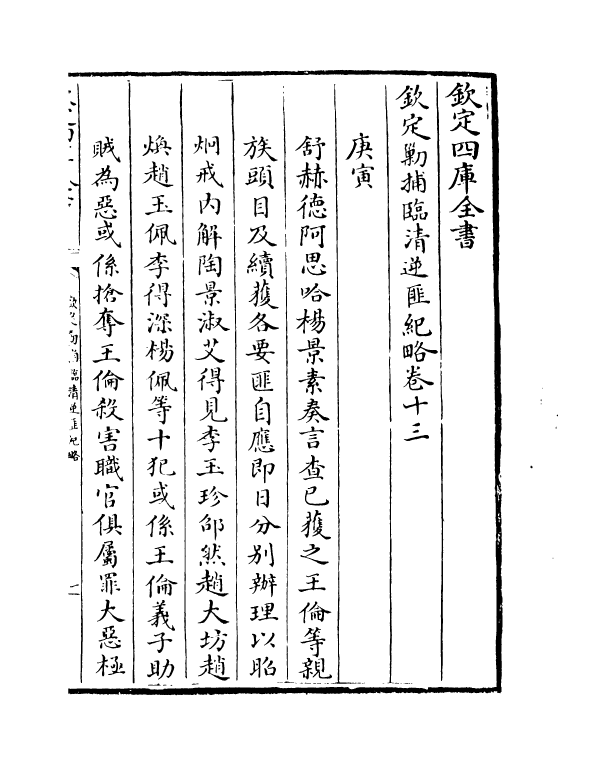 欽定四庫全書
欽定勦捕臨清逆匪紀略卷十三
庚寅
舒赫德阿思哈楊景素奏言查已獲之王倫等親
族頭目及續獲各要匪自應即日分別辦理以昭
炯戒內解陶景淑艾得見李玉珍邰然趙大坊趙
煥趙玉佩李得深楊佩等十犯或係王倫義子助
賊為惡或係搶奪王倫殺害職官俱屬罪大惡極
臨清逆匪紀略